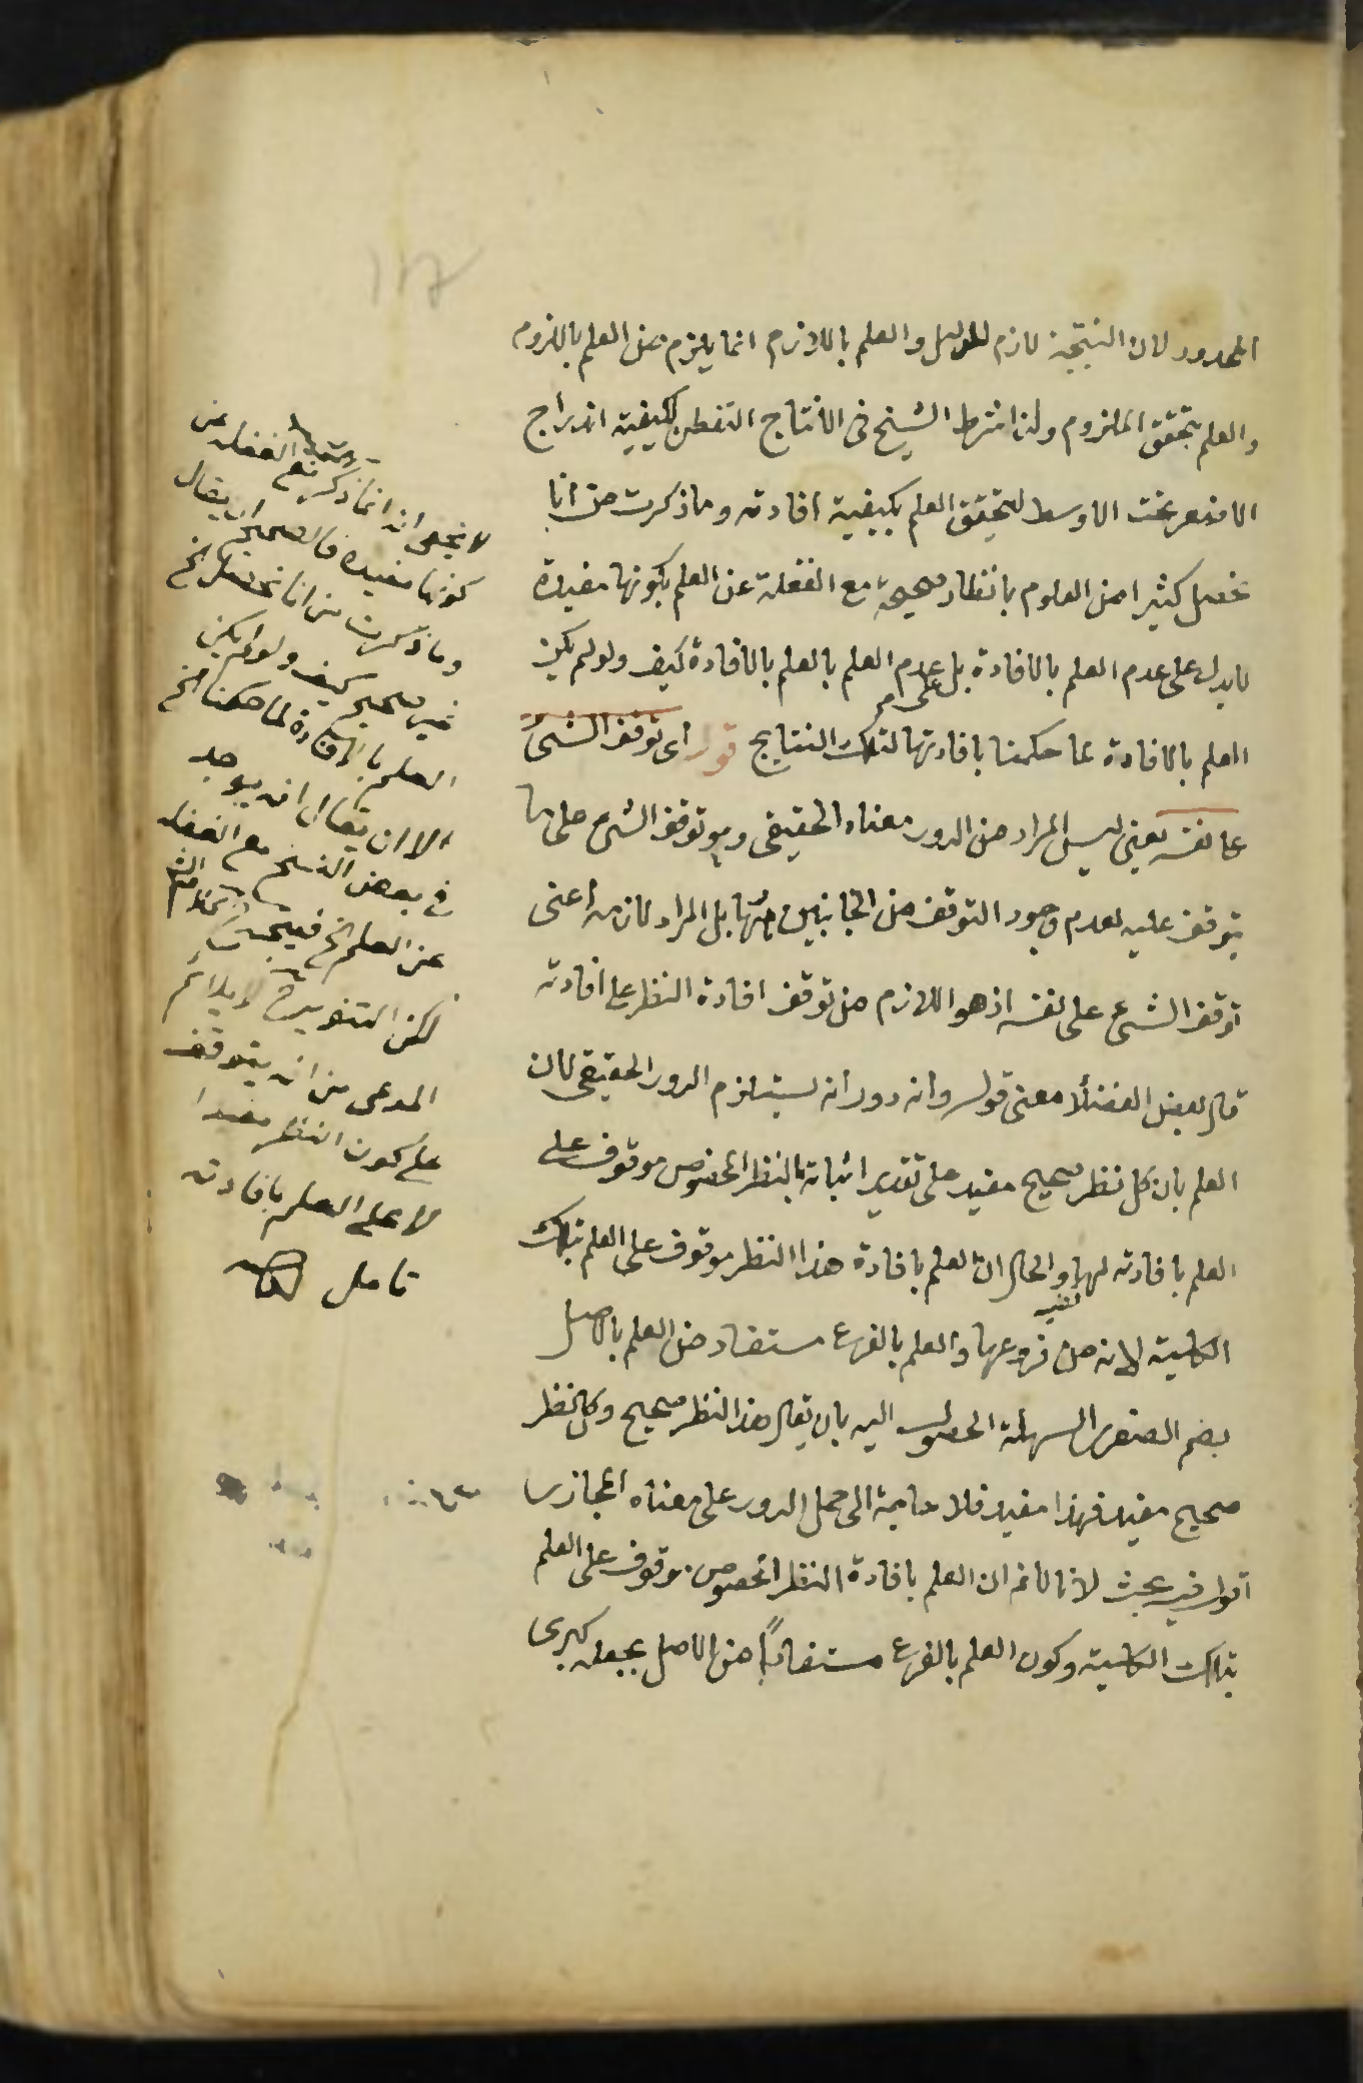 المحدود لان النتيجة لازم للدليل والعلم باللازم انما يلزم من العلم باللزوم
والعلم بتحقق الملزوم ولذا اشترط الشيخ في الانتاج التفطن لكيفية اندراج
الاصغر تحت الاوسط ليتحقق العلم بكيفية افادته وما ذكرت من انا
نحصل كثيرا من العلوم بانظار صحيحة مع الغفلة عن العلم بكونها مفيدة
لا يدل على عدم العلم بالافادة بل على عدم العلم بالعلم بالافادة كيف ولو لم يكن
العلم بالافادة لما حكمنا بافادتها لتلك النتايج قوله اى توقف الشئ
على نفسه يعني ليس المراد من الدور معناه الحقيقي وهو توقف الشئ على ما
يتوقف عليه لعدم وجود التوقف من الجانبين ههنا بل المراد لازمه اعنى
توقف الشئ على نفسه اذ هو اللازم من توقف افادة النظر على افادته
قال بعض الفضلأ معنى قوله وانه دور انه يستلزم الدور الحقيقي لان
العلم بان كل نظر صحيح مفيد على تقدير اثباته بالنظر المخصوص موقوف على
العلم بافادته لها والحال ان العلم بافادة هذا النظر موقوف على العلم بتلك
الكلية لانه من فروعها والعلم بالفرع مستفاد من العلم بالاصل
بضم الصغرى السهلة الحصول اليه بان يقال هذا النظر صحيح وكل نظر
صحيح مفيد فهذا مفيد فلا حاجة الى حمل الدور على معناه المجازى
اقول فيه بحث لانا لانم ان العلم بافادة النظر المخصوص موقوف على العلم
بتلك الكلية وكون العلم بالفرع مستفادًا من الاصل بجعله كبرى
لا يخفى انه انما ذكر مع الغفلة عن
كونها مفيدة فالصحيح ان يقال
وما ذكرت من انا نحصل الخ
غير صحيح كيف ولو لم يكن
العلم بالافادة لما حكمنا الخ
الا ان يقال انه يوجد
في بعض النسخ مع الغفلة
عن العلم الخ فيتجه
لكن التقرير لا يلائم
المدعى من انه يتوقف
على كون النظر مفيدا
لا على العلم بافادته
تامل